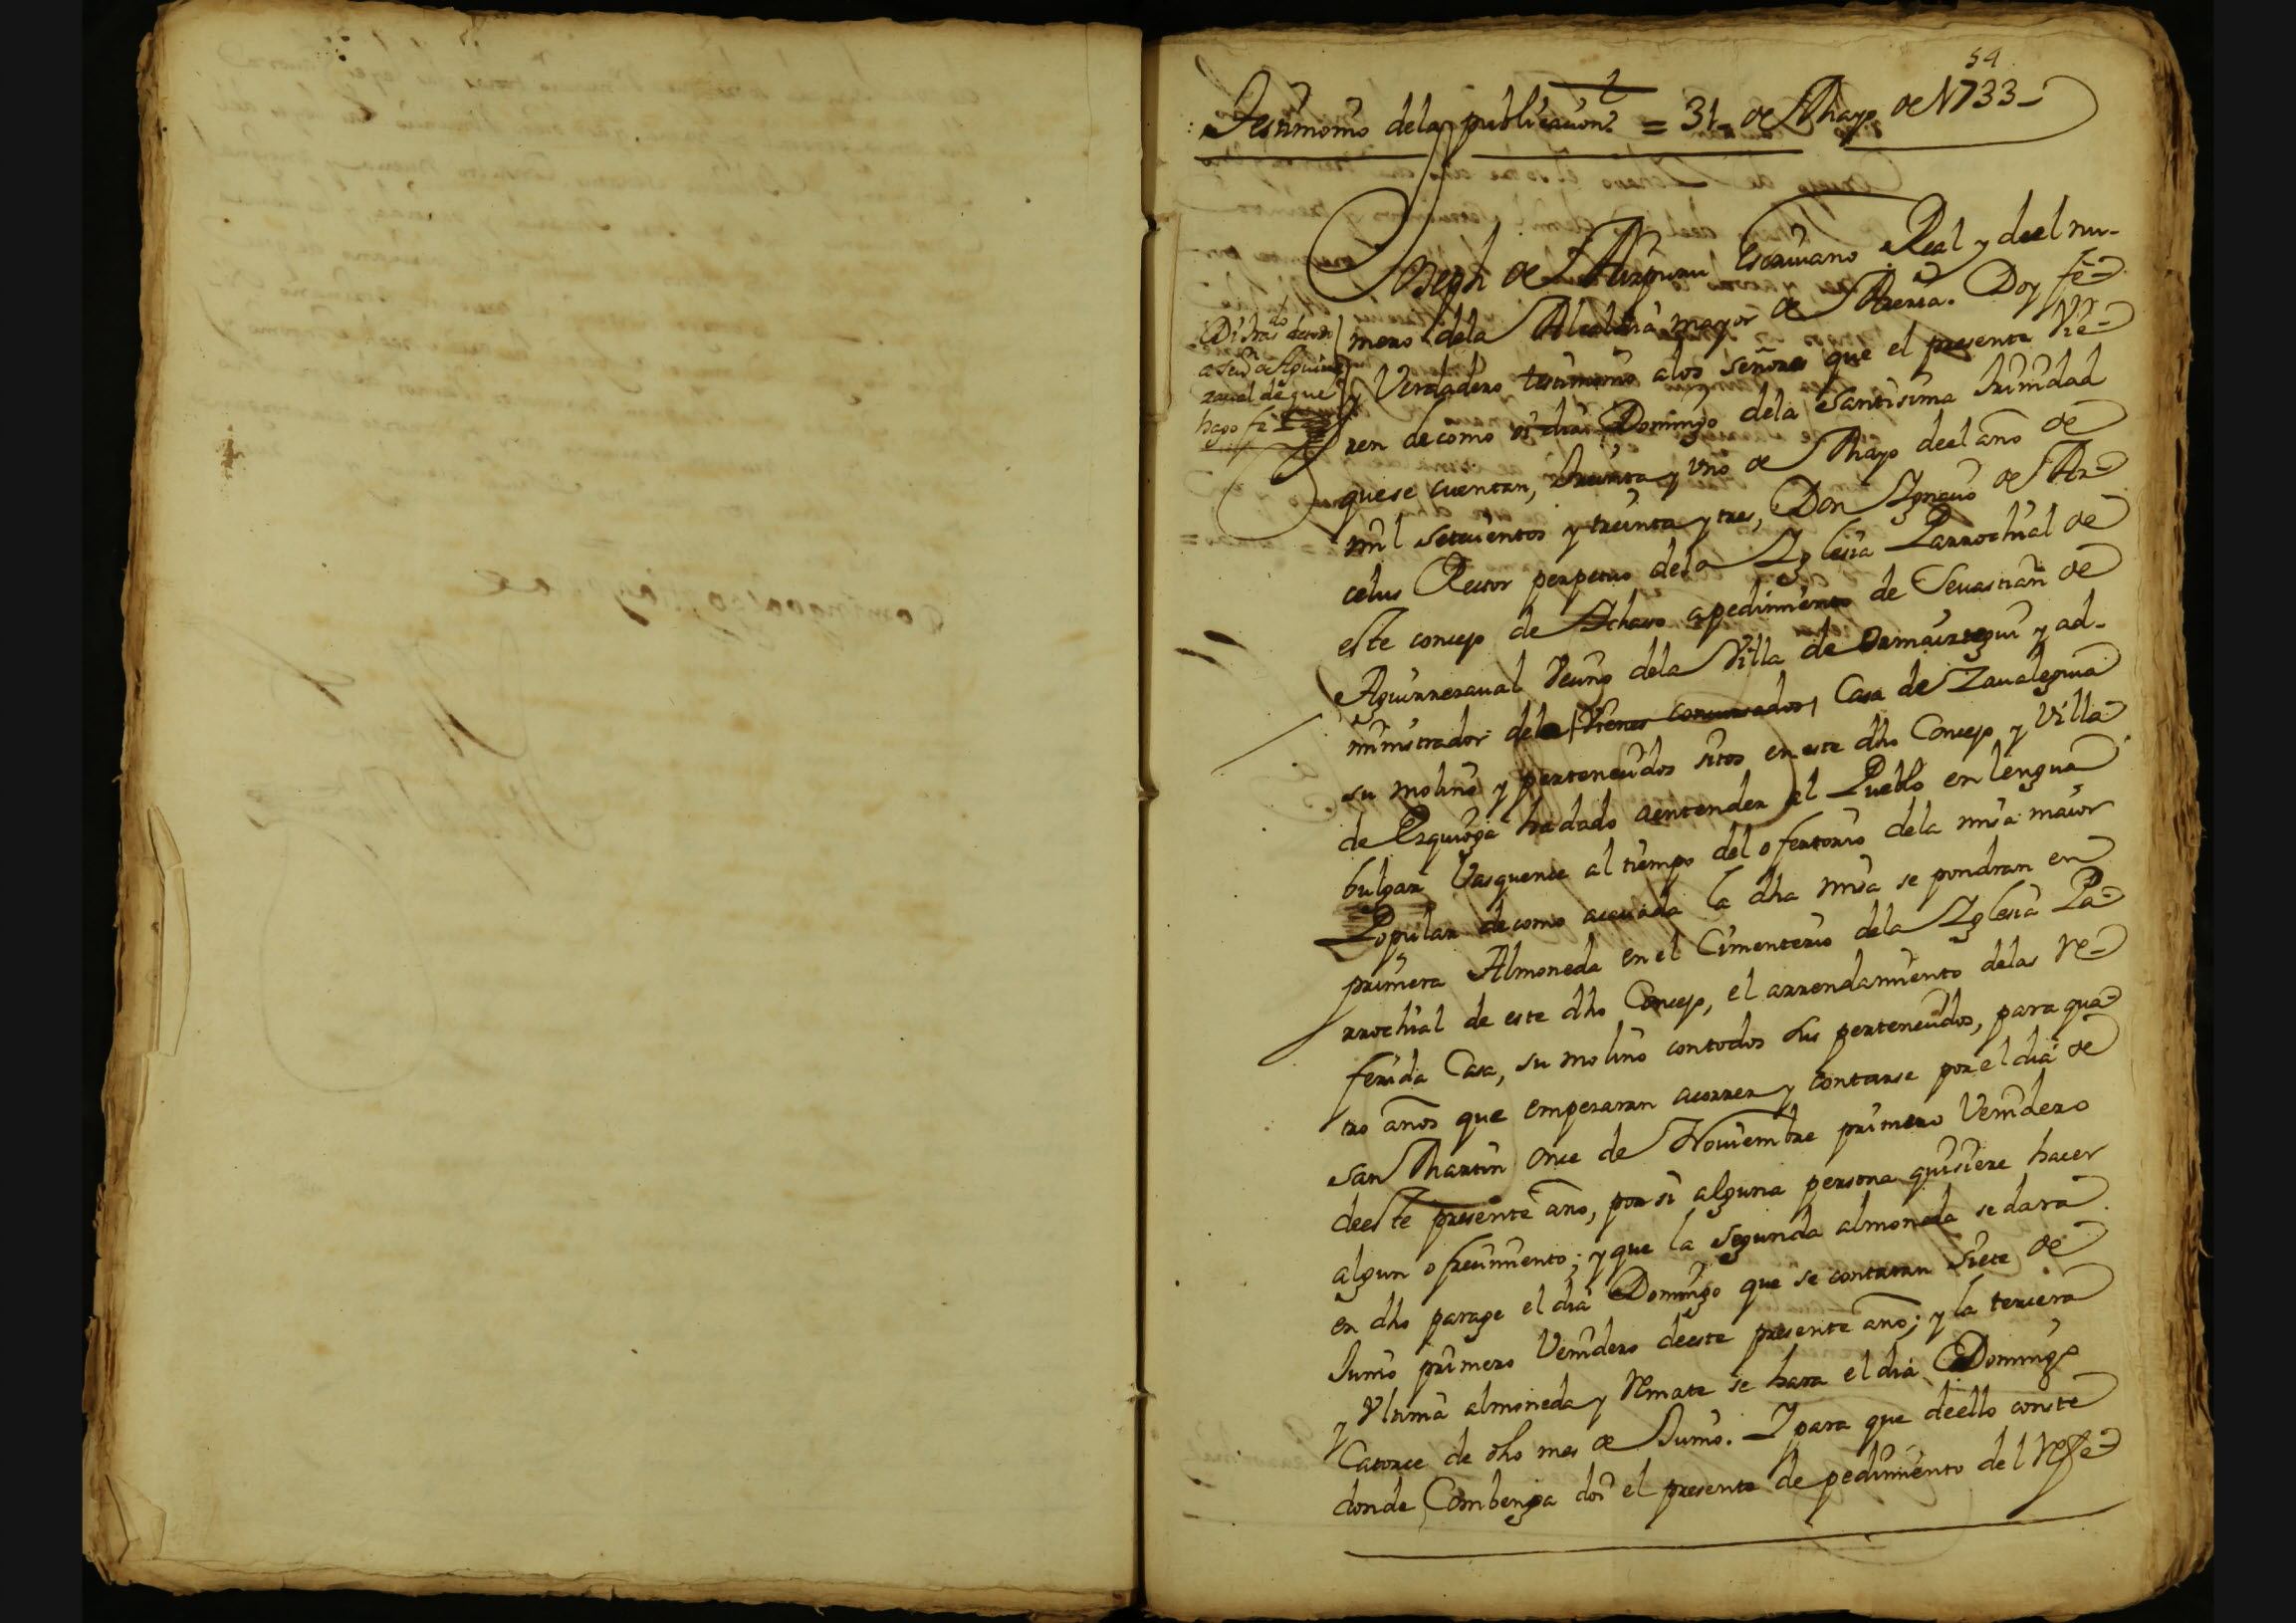 54
1
Testimonio dela publicacion = 31 de Mayo de 1733
Joseph de Aizpuru escriuano Real y deel nu-
mero dela Alcaldia mayor de Areria. Doy fe
y Verdadero testimonio alos señores que el presente Vie-
ren de como oi dia Domingo dela santisima trinidad
que se cuentan, treinta y uno de Mayo deel año de
mil setecientos y treinta y tres, Don Ygnacio de Ar-
celus Rector perpetuo dela Yglesia Parrochial de
este concejo de Ychaso apedimiento de Seuastian de
Aguirrezaual Vecino dela Villa de Ormaiztegui y ad-
ministrador dela Vienes concursados, Casa de Zaualegui
su molino y pertenecidos sitos en este dho Concejo y Villa
de Ezquioga ha dado aentender al Pueblo en lengua
bulgar Vasquence al tiempo del ofertorio dela misa maior
Popular de como acauada la dha misa se pondran en
primera Almoneda en el Cimenterio dela Yglesia Pa-
rrochial de este dho Concejo, el arrendamiento delas re-
ferida Casa, su molino contodos sus pertenecidos, para qua-
tro años que empezaran acorrer y contarse por el dia de
san Martin once de Noviembre primero Venidero
deeste presente año, por si alguna persona quisiere hacer
algun ofrecimiento; y que la segunda almoneda se dara
en dho parage el dia Domingo que se contaran siete de
Junio primero Venidero deeste presente año; y la tercera
y Vltima almoneda y Remate se hara el dia Domingo
Catorce de dho mes de Junio. Y para que deello conste
donde Combenga doi el presente de pedimiento del Refe-
zaual de que
hago fe